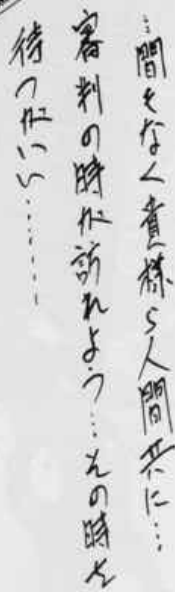 …間もなく貴様ら人間共に…
審判の時が訪れよう…その時を
待つがいい………